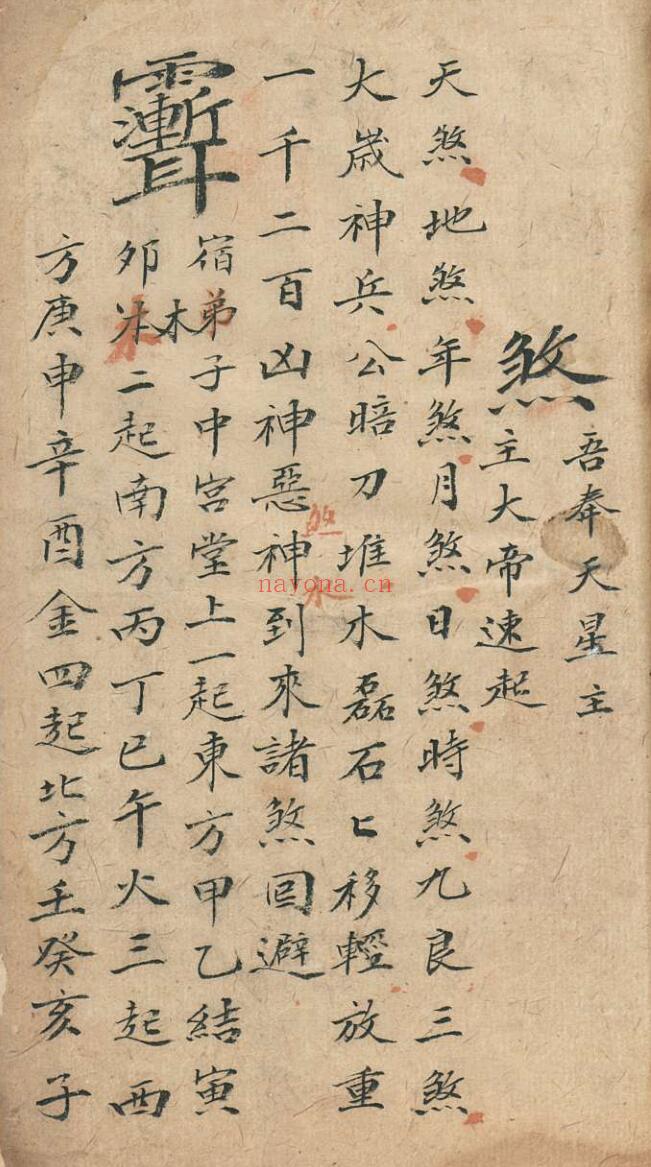 吾奉天星主
煞主大帝速起
天煞地煞年煞月煞日煞時煞九良三煞
大歲神兵公暗刀堆木磊石匕移輕放重
一千二百凶神惡神到來諸煞回避
煞水
宿弟子中宮堂上一起東方甲乙結寅
卯木二起南方丙丁巳午火三起西
方庚申辛酉金四起北方壬癸亥子
nayona.cn